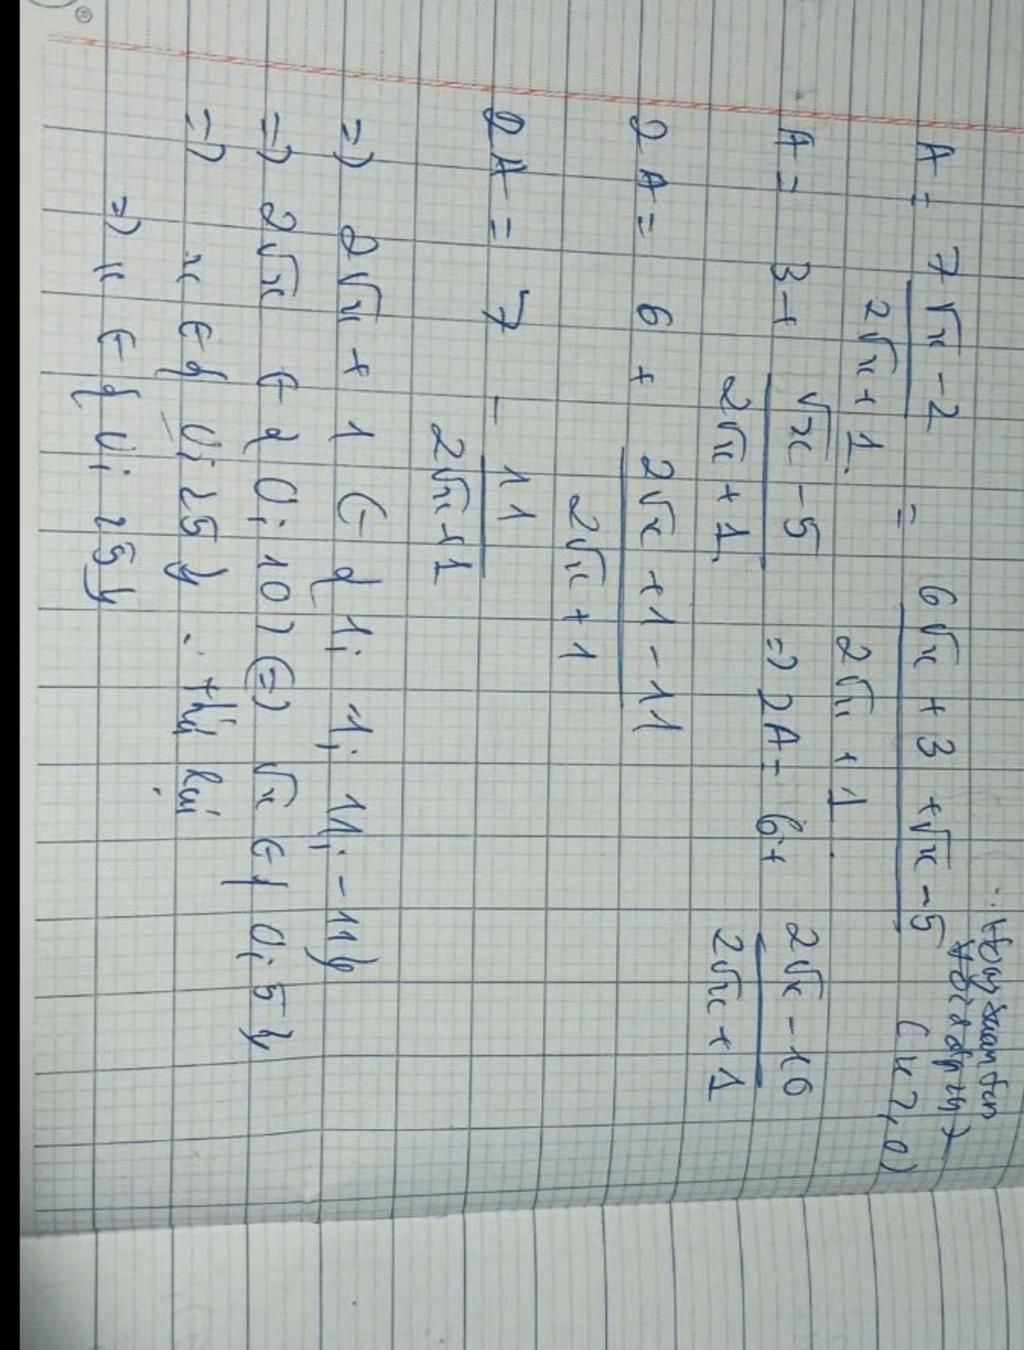 A = \frac{7\sqrt{x} - 2}{2\sqrt{x} + 1} = \frac{6\sqrt{x} + 3 + \sqrt{x} - 5}{2\sqrt{x} + 1} (x ≥, 0)
A = 3 + \frac{\sqrt{x} - 5}{2\sqrt{x} + 1} => 2A = 6 + \frac{2\sqrt{x} - 10}{2\sqrt{x} + 1}
2A = 6 + \frac{2\sqrt{x} + 1 - 11}{2\sqrt{x} + 1}
2A = 7 - \frac{11}{2\sqrt{x} + 1}
=> 2\sqrt{x} + 1 ∈ { 1; -1; 11; -11 }
=> 2\sqrt{x} ∈ { 0; 10 } (=) \sqrt{x} ∈ { 0; 5 }
=> x ∈ { 0; 25 }
=> x ∈ { 0; 25 }